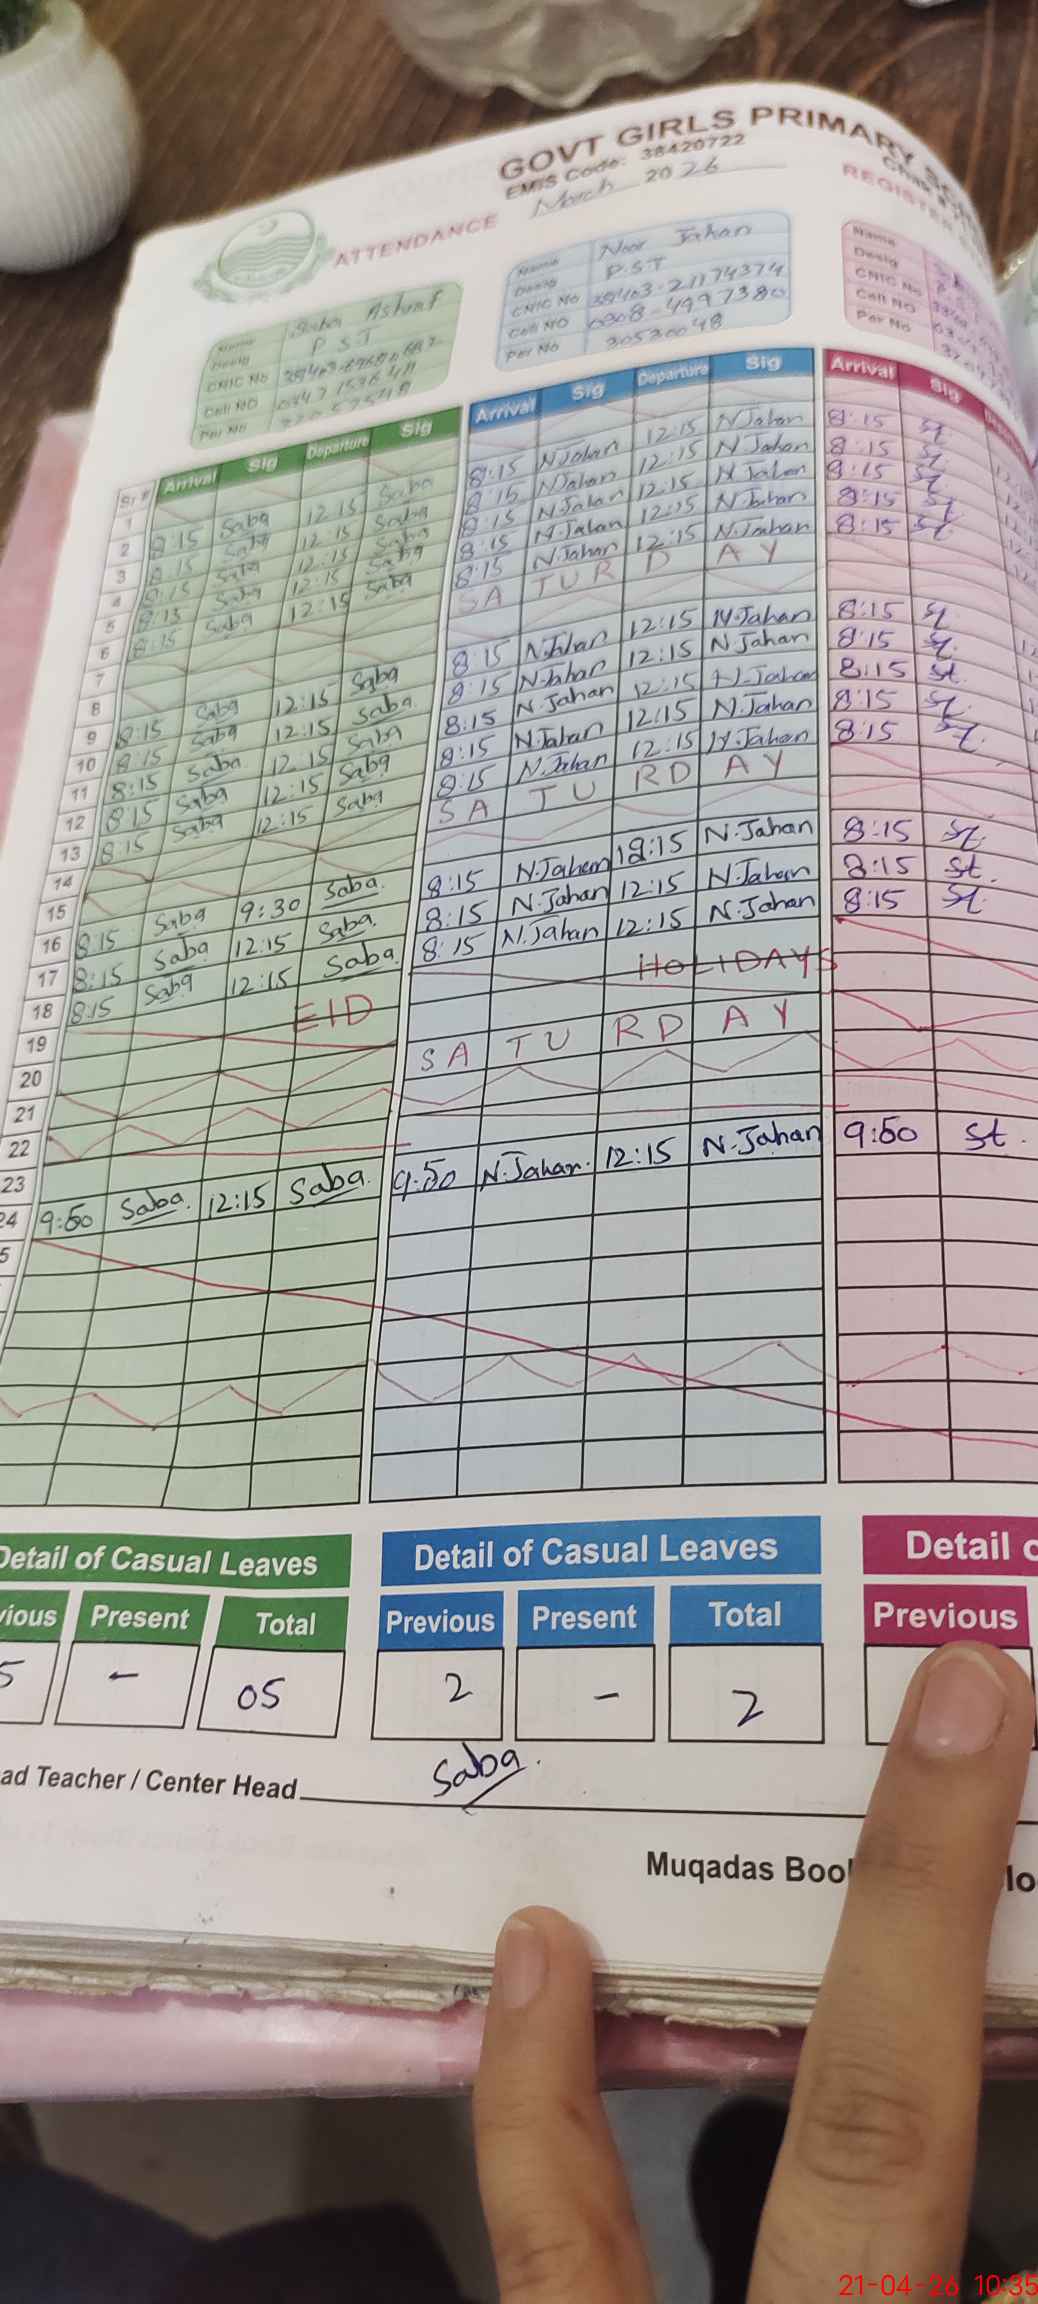 GOVT GIRLS PRIMARY
EMIS Code: 38420722
March 2026
ATTENDANCE
REGISTER
Name Saba Ashraf
Desig PST
CNIC No
Cell NO
Per No
Name Noor Jahan
Desig PST
CNIC No
Cell NO 0308-4997380
Per No 30530048
Name
Desig
CNIC No
Cell NO
Per No
Sr # Arrival Sig Departure Sig Arrival Sig Departure Sig Arrival Sig
1
2 8:15 Saba 12:15 Saba 8:15 N.Jahan 12:15 N.Jahan 8:15 st
3 8:15 Saba 12:15 Saba 8:15 N.Jahan 12:15 N.Jahan 8:15 st
4 8:15 Saba 12:15 Saba 8:15 N.Jahan 12:15 N.Jahan 8:15 st
5 8:15 Saba 12:15 Saba 8:15 N.Jahan 12:15 N.Jahan 8:15 st
6 8:15 Saba 12:15 Saba 8:15 N.Jahan 12:15 N.Jahan 8:15 st
7 SATURDAY
8
9 8:15 Saba 12:15 Saba 8:15 N.Jahan 12:15 N.Jahan 8:15 st.
10 8:15 Saba 12:15 Saba 8:15 N.Jahan 12:15 N.Jahan 8:15 st.
11 8:15 Saba 12:15 Saba 8:15 N.Jahan 12:15 N.Jahan 8:15 st.
12 8:15 Saba 12:15 Saba 8:15 N.Jahan 12:15 N.Jahan 8:15 st.
13 8:15 Saba 12:15 Saba 8:15 N.Jahan 12:15 N.Jahan 8:15 st.
14 SATURDAY
15
16 8:15 Saba 9:30 Saba. 8:15 N.Jahan 12:15 N.Jahan 8:15 st.
17 8:15 Saba 12:15 Saba. 8:15 N.Jahan 12:15 N.Jahan 8:15 st.
18 8:15 Saba 12:15 Saba. 8:15 N.Jahan 12:15 N.Jahan 8:15 st.
19 EID HOLIDAYS
20
21 SATURDAY
22
23
24 9:50 Saba. 12:15 Saba. 9:50 N.Jahan. 12:15 N.Jahan 9:50 st.
5
Detail of Casual Leaves Detail of Casual Leaves Detail
Present Total Previous Present Total Previous
5 - 05 2 - 2
ad Teacher / Center Head Saba.
Muqadas Boo
21-04-26 10:35